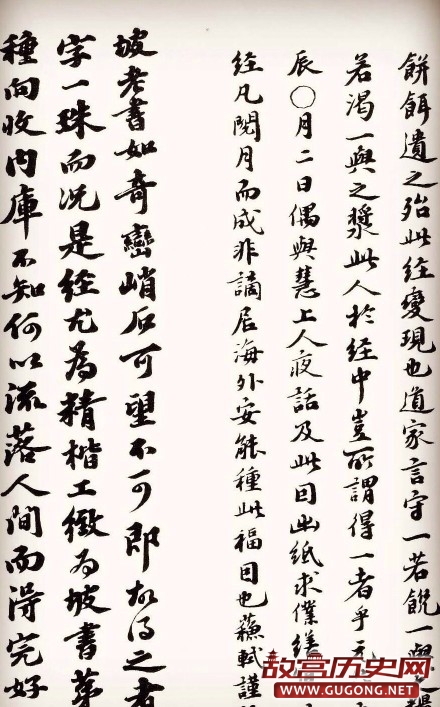 餅餌遺之殆此經變現也道家言守一若飢一與之糧
若渴一與之漿此人於經中豈所謂得一者乎元
辰〇月二日偶與慧上人夜話及此因出紙求僕繕
經凡閱月而成非謫居海外安能種此福田也蘇軾謹
坡老書如奇巒峭石可望不可即故得之者
字一珠而況是經尤為精楷工緻為坡書第
種向收內庫不知何以流落人間而得完好
故宫历史网
WWW.GUGONG.NET